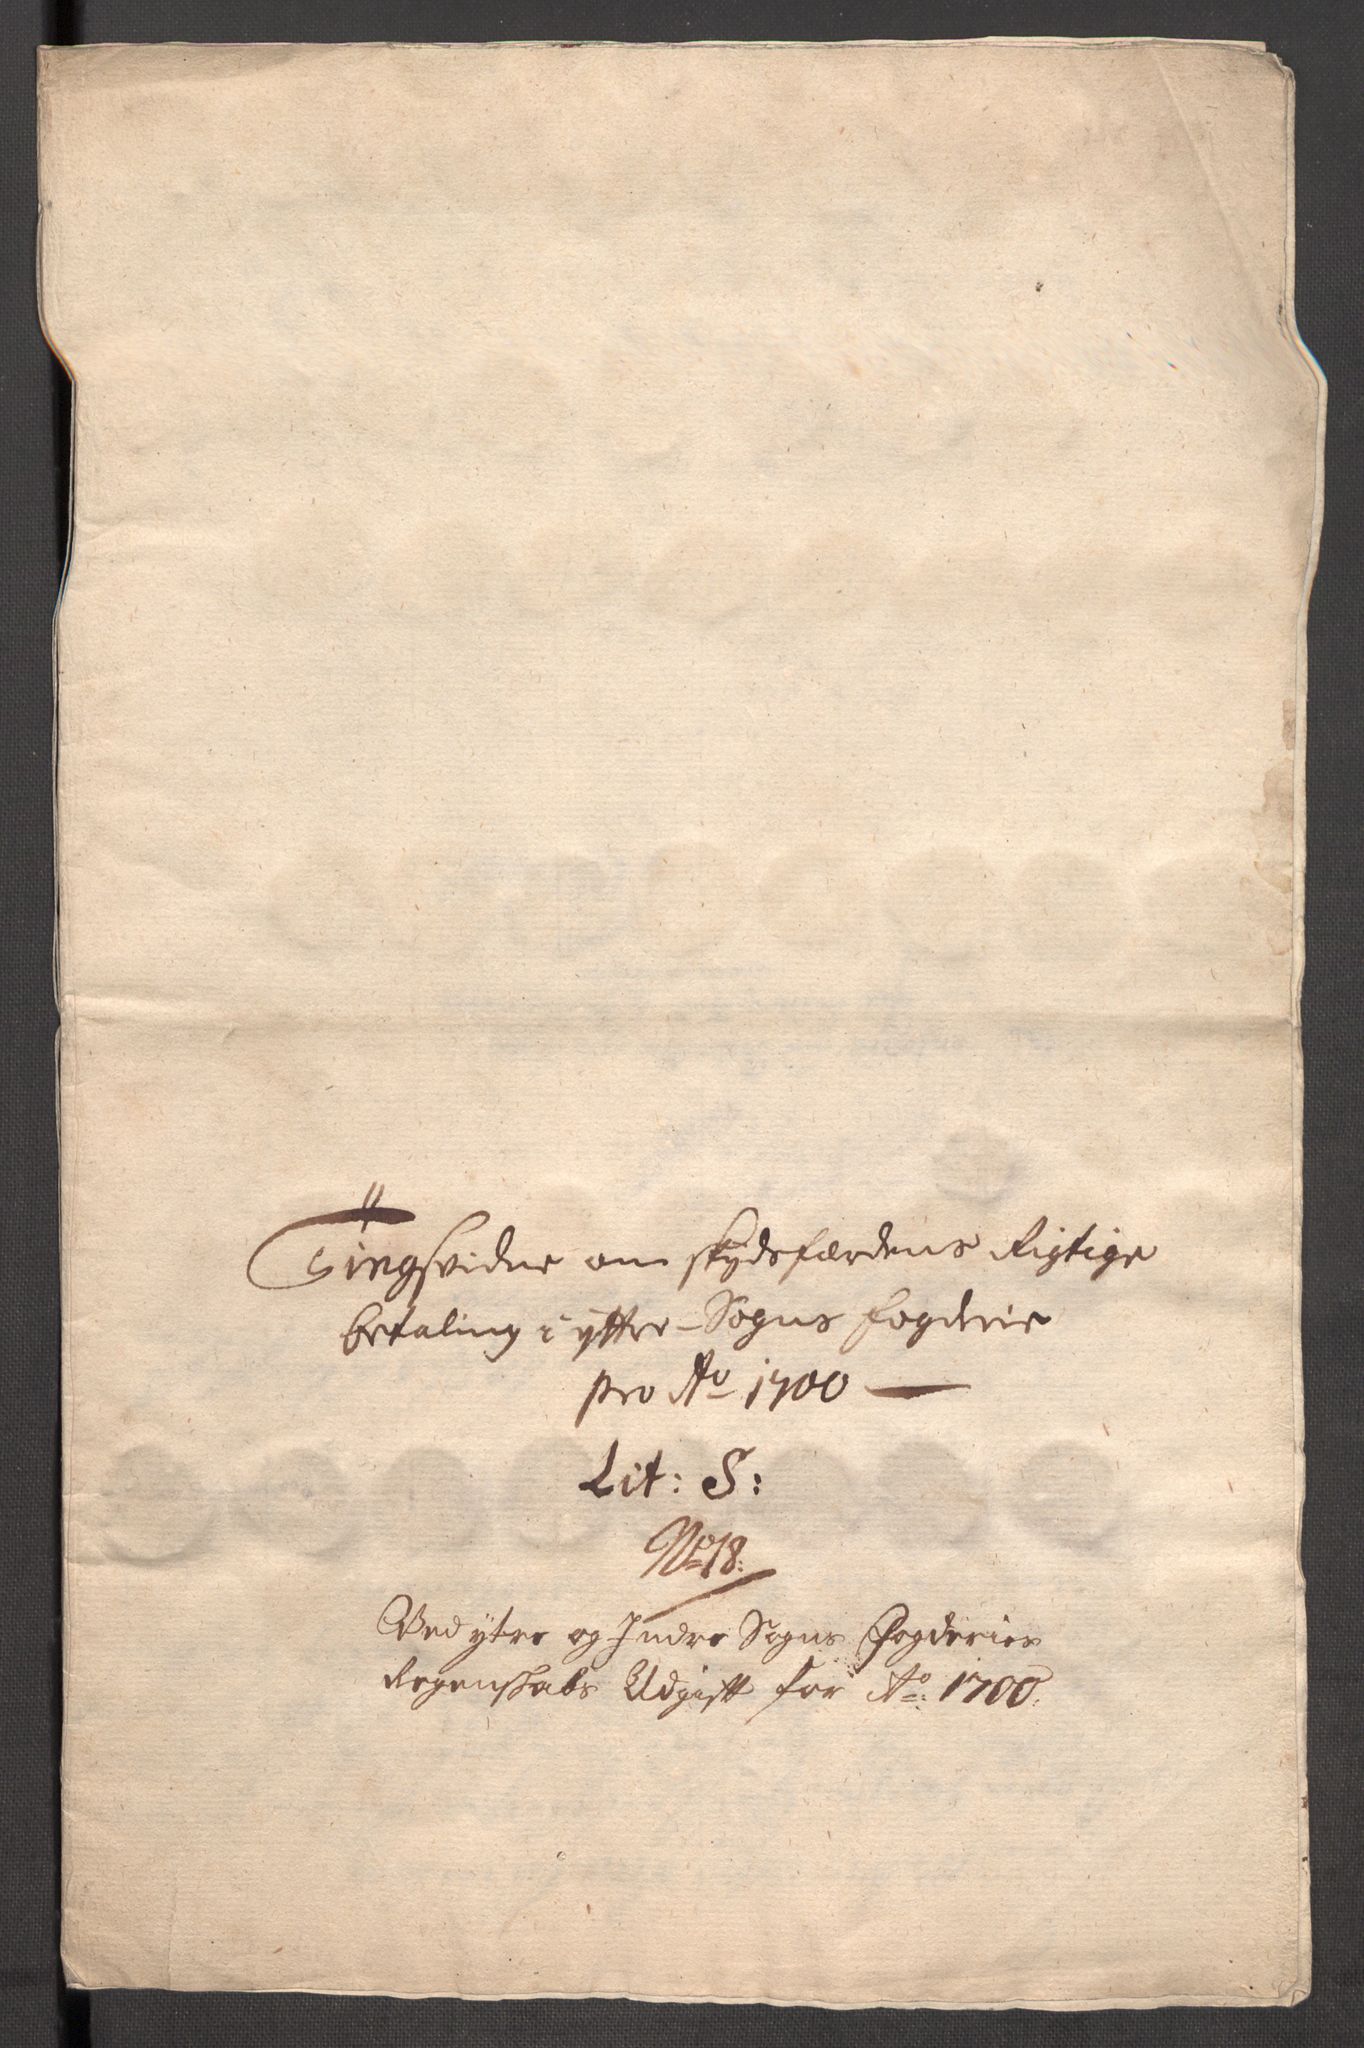 Tingsvidne om skydsfærdens Rigtige
betaling i yttre Sogns fogderie
pro Ao 1700
Lit: S:
No 18:
Ved ytre og Indre Sogns Fogderies
Regenskabs Udgift for Ao: 1700.